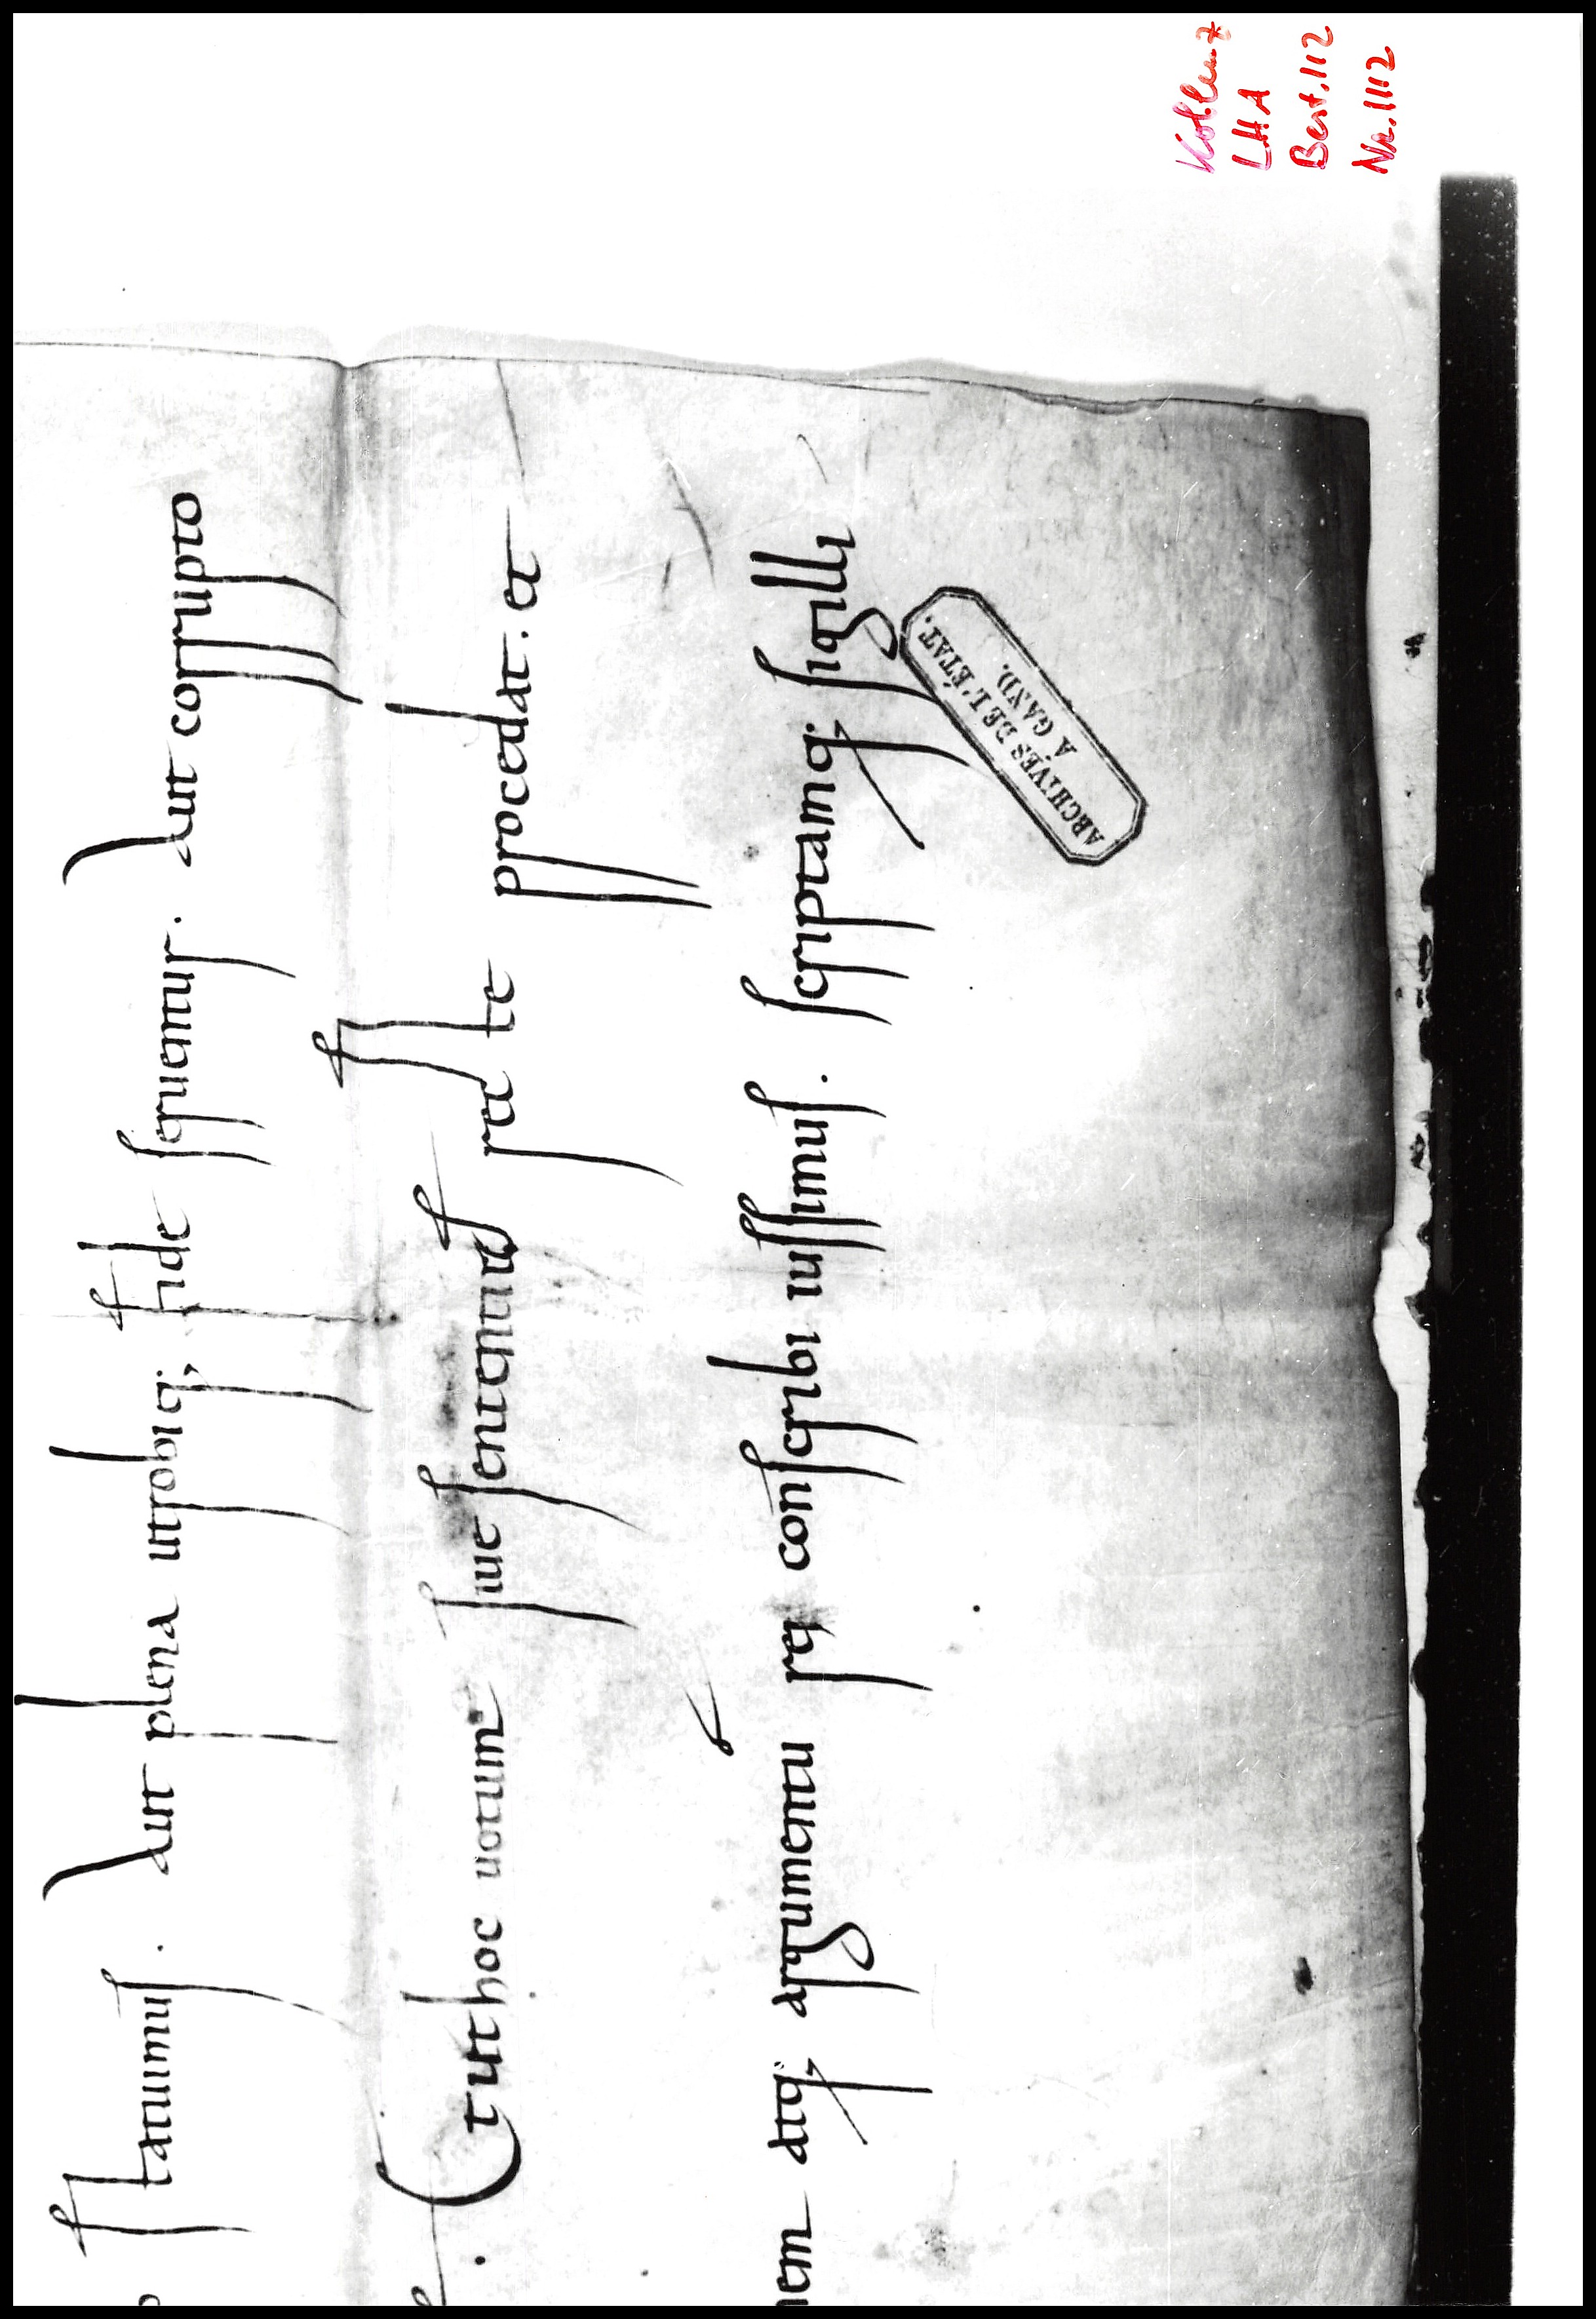 Koblenz
LHA
Best. 112
Nr. 1112
statuimus. Aut plena utrobiq; fide seruentur. Aut corrupto
. Et ut hoc uotum siue sententia rate procedat. et
nem atq; argumentu rei conscribi iussimus. scriptamq; sigilli
ARCHIVES DE L'ÉTAT,
A GAND.